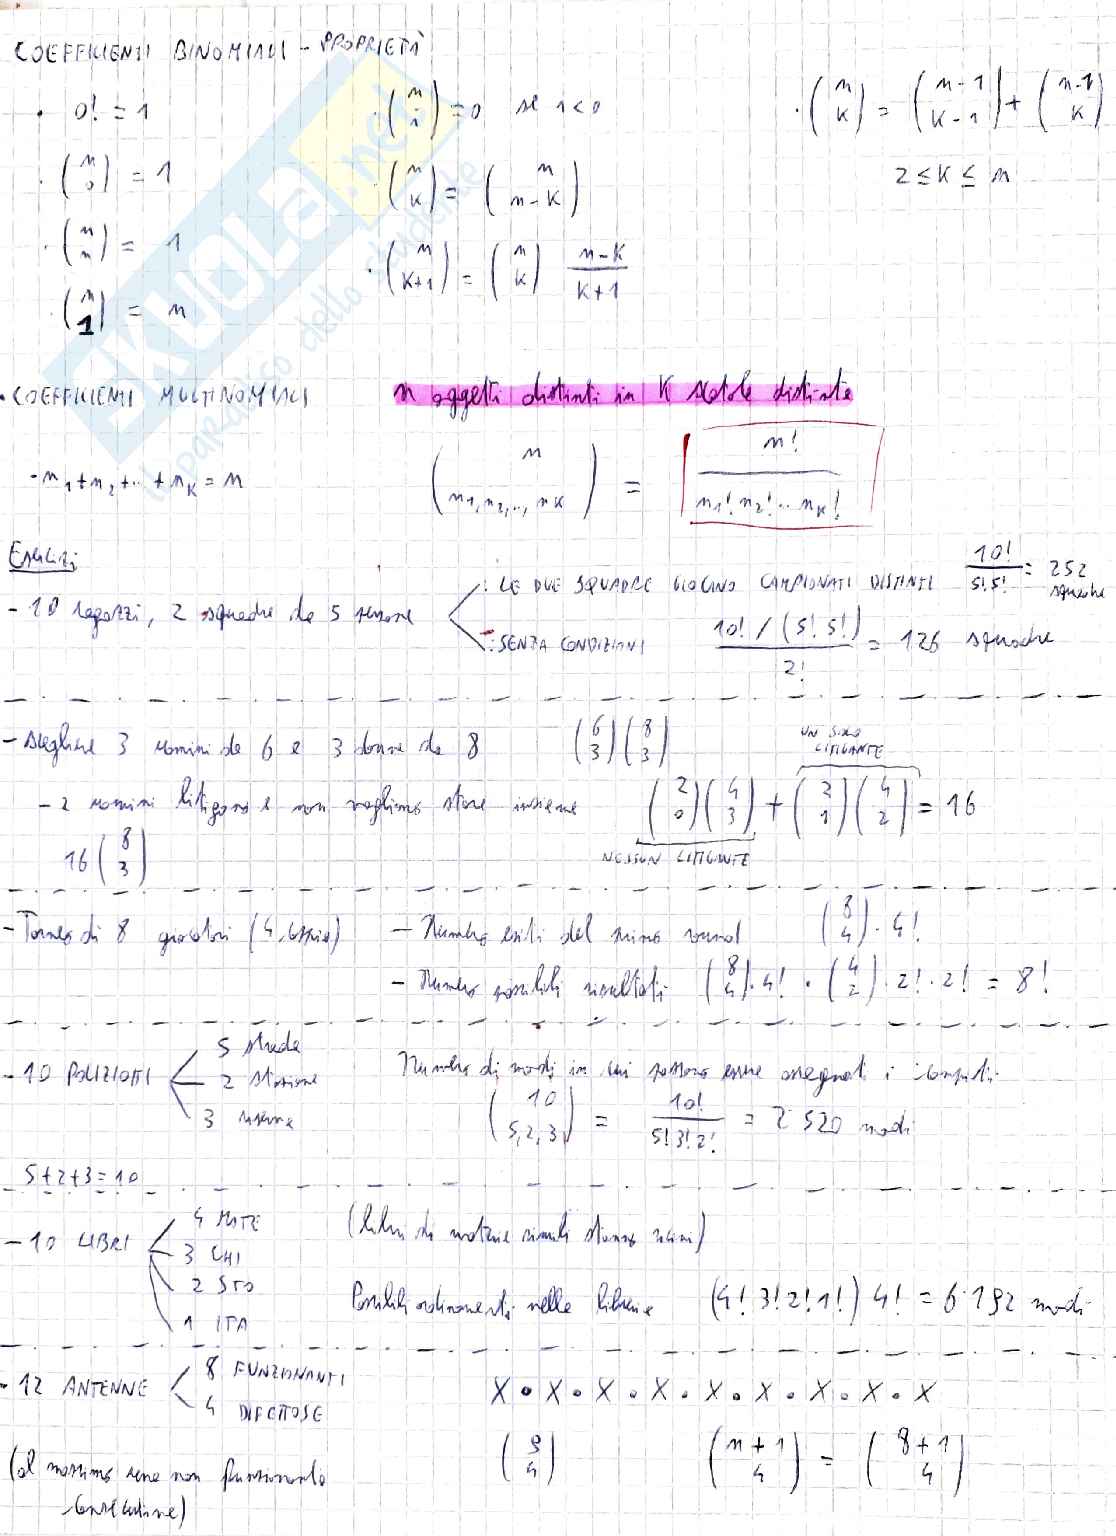 COEFFICIENTI BINOMIALI - PROPRIETÀ
· 0! = 1
· (n 0) = 1
· (n n) = 1
· (n 1) = n
· (n i) = 0 se i < 0
· (n K) = (n n-K)
· (n K+1) = (n K) n-K / K+1
· (n K) = (n-1 K-1) + (n-1 K)
2 ≤ K ≤ n
· COEFFICIENTI MULTINOMIALI n oggetti distinti in K scatole distinte
- n1 + n2 + .. + nK = n (n n1, n2, .., nK) = n! / n1! n2! .. nK!
Esercizi
- 10 ragazzi, 2 squadre da 5 persone
: LE DUE SQUADRE GIOCANO CAMPIONATI DISTINTI 10! / 5! 5! = 252 squadre
: SENZA CONDIZIONI 10! / (5! 5!) / 2! = 126 squadre
- Scegliere 3 uomini da 6 e 3 donne da 8 (6 3) (8 3)
UN SOLO LITIGANTE
- 2 uomini litigano e non vogliono stare insieme (2 0) (4 3) + (2 1) (4 2) = 16
NESSUN LITIGANTE
16 (8 3)
- Torneo di 8 giocatori (4 coppie) - Numero esiti del primo round (8 4) · 4!
- Numero possibili risultati (8 4) · 4! · (4 2) · 2! · 2! = 8!
- 10 POLIZIOTTI
5 strada
2 stazione
3 riserva
Numero di modi in cui possono essere assegnati i compiti
(10 5, 2, 3) = 10! / 5! 3! 2! = 2520 modi
5+2+3 = 10
- 10 LIBRI
4 MATE
3 CHI
2 STO
1 ITA
(libri di materie simili stanno vicini)
Possibili ordinamenti nella libreria (4! 3! 2! 1!) 4! = 6·192 modi
- 12 ANTENNE
8 FUNZIONANTI
4 DIFETTOSE
X · X · X · X · X · X · X · X · X
(9 4) (n+1 4) = (8+1 4)
(al massimo una non funzionante
consecutiva)
SKUOLA.net
il paradiso dello studente